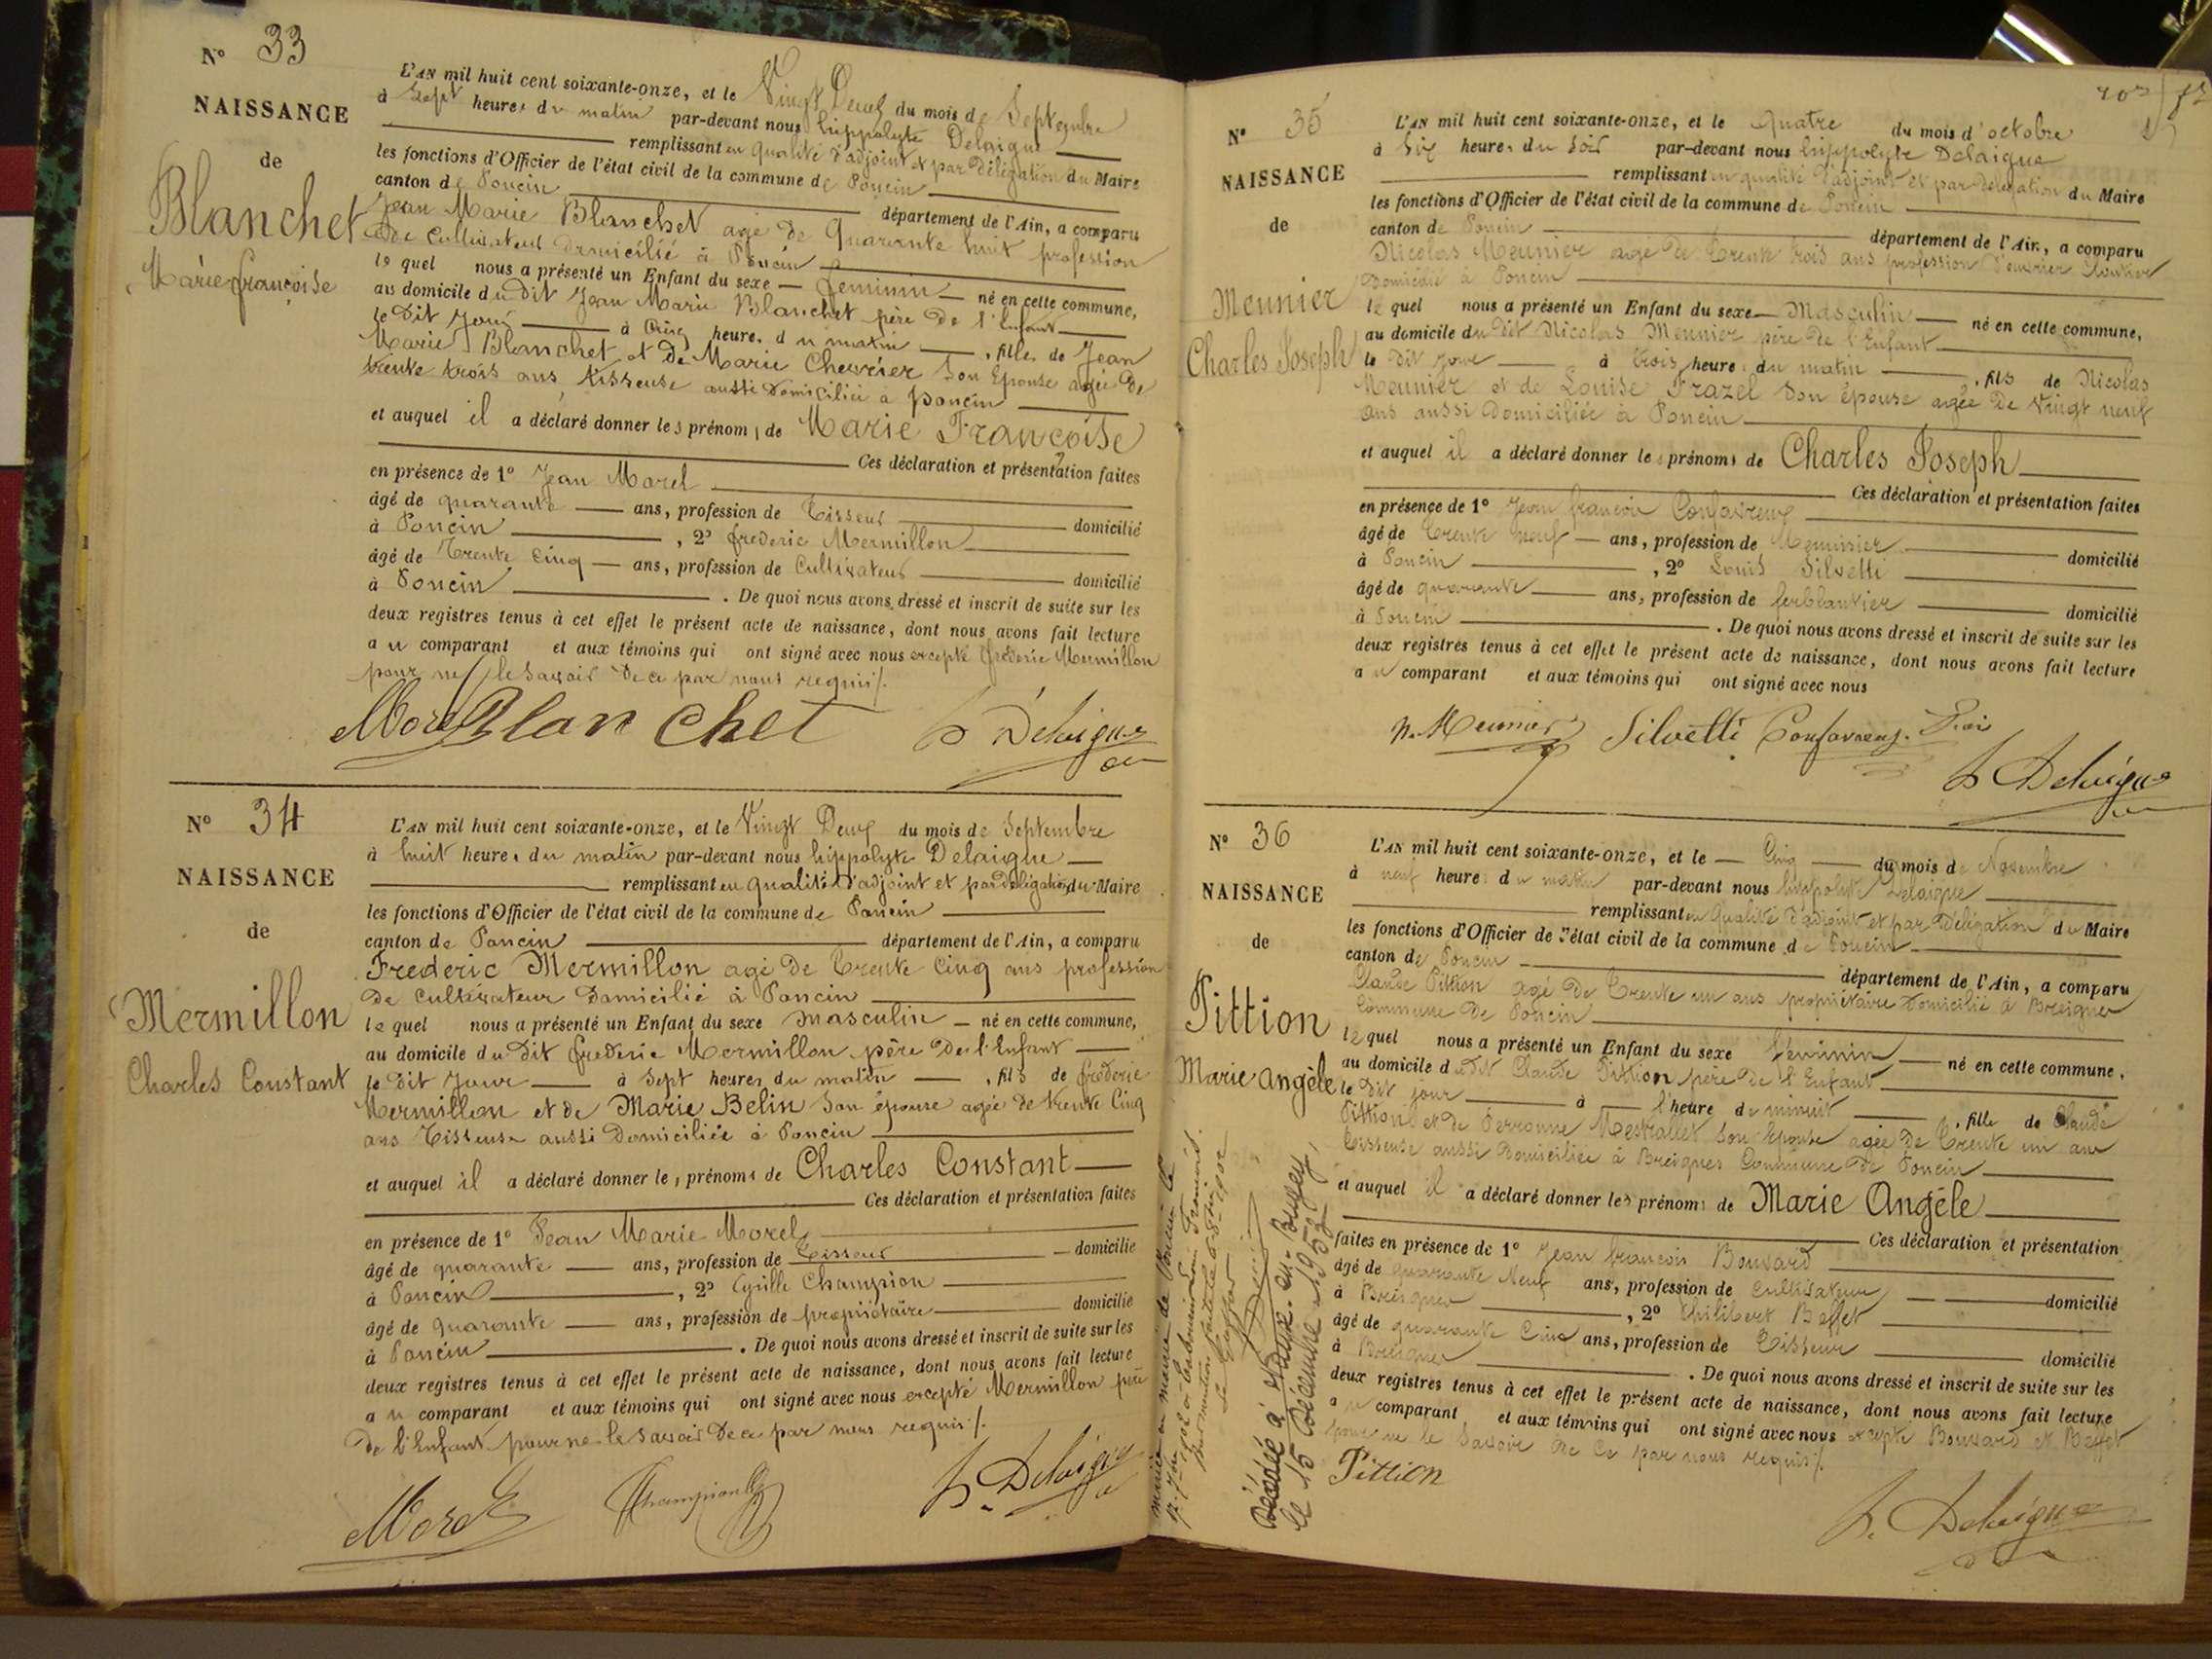 N° 33
NAISSANCE
de
Blanchet
Marie françoise
L'AN mil huit cent soixante-onze, et le Vingt Deux du mois de Septembre
à Sept heures du matin par-devant nous hippolyte Delaigue
remplissant en qualité d'adjoint et par Délégation du Maire
les fonctions d'Officier de l'état civil de la commune de Poncin
canton de Poncin département de l'Ain, a comparu
Jean Marie Blanchet agé de Quarante huit profession
de Cultivateur Domicilié à Poncin
le quel nous a présenté un Enfant du sexe féminin né en cette commune,
au domicile du dit Jean Marie Blanchet père de l'Enfant
le Dit Jour à Cinq heures du matin , fille de Jean
Marie Blanchet et de Marie Chevrier Son Epouse agée De
trente trois ans tisseuse aussi Domiciliée à poncin
et auquel il a déclaré donner les prénoms de Marie Françoise
Ces déclaration et présentation faites
en présence de 1° Jean Morel
âgé de quarante ans, profession de Tisseur domicilié
à Poncin , 2° frederic Mermillon
âgé de Trente Cinq ans, profession de Cultivateur domicilié
à Poncin . De quoi nous avons dressé et inscrit de suite sur les
deux registres tenus à cet effet le présent acte de naissance, dont nous avons fait lecture
au comparant et aux témoins qui ont signé avec nous excepté frederic Mermillon
pour ne le savoir De ce par nous requis /.
Morel Blanchet h Delaigue
N° 34
NAISSANCE
de
Mermillon
Charles Constant
L'AN mil huit cent soixante-onze, et le Vingt Deux du mois de Septembre
à huit heures du matin par-devant nous hippolyte Delaigue
remplissant en qualité d'adjoint et par délégation du Maire
les fonctions d'Officier de l'état civil de la commune de Poncin
canton de Poncin département de l'Ain, a comparu
Frederic Mermillon agé De Trente Cinq ans profession
de Cultivateur Domicilié à Poncin
le quel nous a présenté un Enfant du sexe masculin né en cette commune,
au domicile du Dit frederic Mermillon père De l'Enfant
le Dit Jour à Sept heures du matin , fils de frederic
Mermillon et de Marie Belin Son épouse agée de trente Cinq
ans Tisseuse aussi Domiciliée à Poncin
et auquel il a déclaré donner les prénoms de Charles Constant
Ces déclaration et présentation faites
en présence de 1° Jean Marie Morel
âgé de quarante ans, profession de Tisseur domicilié
à Poncin , 2° Cyrille Champion
âgé de quarante ans, profession de propriétaire domicilié
à Poncin . De quoi nous avons dressé et inscrit de suite sur les
deux registres tenus à cet effet le présent acte de naissance, dont nous avons fait lecture
au comparant et aux témoins qui ont signé avec nous excepté Mermillon père
de l'Enfant pour ne le savoir De ce par nous requis /.
Morel Champion h. Delaigue
N° 35
NAISSANCE
de
Meunier
Charles Joseph
L'AN mil huit cent soixante-onze, et le Quatre du mois d'octobre
à Six heures du Soir par-devant nous hippolyte Delaigue
remplissant en qualité d'adjoint et par délégation du Maire
les fonctions d'Officier de l'état civil de la commune de Poncin
canton de Poncin département de l'Ain, a comparu
Nicolas Meunier agé de Trente trois ans profession d'ouvrier
Domicilié à Poncin
le quel nous a présenté un Enfant du sexe Masculin né en cette commune,
au domicile du dit Nicolas Meunier père de l'Enfant
le Dit Jour à trois heures du matin , fils de Nicolas
Meunier et de Louise Frazel Son épouse agée De Vingt neuf
ans aussi Domiciliée à Poncin
et auquel il a déclaré donner les prénoms de Charles Joseph
Ces déclaration et présentation faites
en présence de 1° Jean françois Confavreux
âgé de Trente Neuf ans, profession de Menuisier domicilié
à Poncin , 2° Louis Silvetti
âgé de quarante ans, profession de ferblantier domicilié
à Poncin . De quoi nous avons dressé et inscrit de suite sur les
deux registres tenus à cet effet le présent acte de naissance, dont nous avons fait lecture
au comparant et aux témoins qui ont signé avec nous
N. Meunier Silvetti Confavreux
h Delaigue
N° 36
NAISSANCE
de
Pittion
Marie angèle
L'AN mil huit cent soixante-onze, et le Cinq du mois de Novembre
à neuf heures du matin par-devant nous hippolyte Delaigue
remplissant en Qualité d'adjoint et par Délégation du Maire
les fonctions d'Officier de l'état civil de la commune de Poncin
canton de Poncin département de l'Ain, a comparu
Claude Pittion agé De Trente un ans propriétaire Domicilié à Breignes
Commune De Poncin
le quel nous a présenté un Enfant du sexe féminin né en cette commune,
au domicile du dit Claude Pittion père De l'Enfant
le Dit jour à l'heure de minuit , fille de Claude
Pittion et de Perronne Mestrallet Son Epouse agée De Trente un ans
Tisseuse aussi Domiciliée à Breignes Commune De Poncin
et auquel il a déclaré donner les prénoms de Marie Angèle
Ces déclaration et présentation
faites en présence de 1° Jean françois Bouvard
âgé de quarante Neuf ans, profession de Cultivateur domicilié
à Breignes , 2° Philibert Beffet
âgé de quarante Cinq ans, profession de Tisseur domicilié
à Breignes . De quoi nous avons dressé et inscrit de suite sur les
deux registres tenus à cet effet le présent acte de naissance, dont nous avons fait lecture
au comparant et aux témoins qui ont signé avec nous excepté Bouvard et Beffet
pour ne le savoir De ce par nous requis /.
Pittion
h. Delaigue
Mariée en mairie de Poncin le
Décédée à
le 15 Décembre 1952